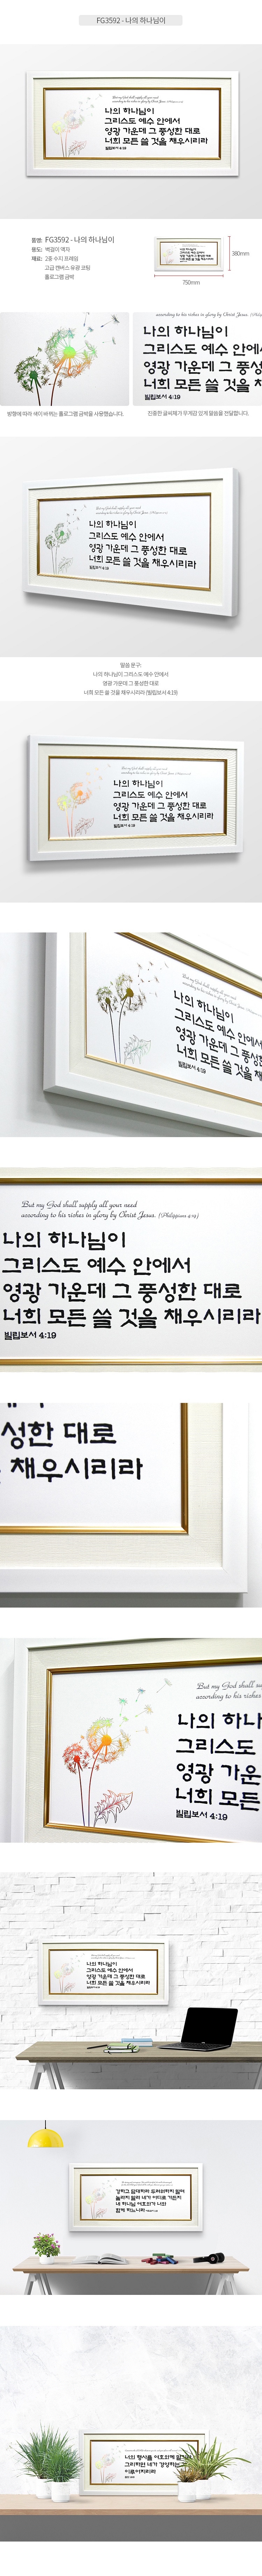 FG3592 - 나의 하나님이
But my God shall supply all your need
according to his riches in glory by Christ Jesus. (Philippians 4:19)
나의 하나님이
그리스도 예수 안에서
영광 가운데 그 풍성한 대로
너희 모든 쓸 것을 채우시리라
빌립보서 4:19
품명: FG3592 - 나의 하나님이
용도: 벽걸이 액자
재료: 2중 수지 프레임
고급 캔버스 유광 코팅
홀로그램 금박
380mm
750mm
according to his riches in glory by Christ Jesus. (Ph
나의 하나님이
그리스도 예수 안에서
영광 가운데 그 풍성한 대
너희 모든 쓸 것을 채우시
빌립보서 4:19
방향에 따라 색이 바뀌는 홀로그램 금박을 사용했습니다.
진중한 글씨체가 무게감 있게 말씀을 전달합니다.
나의 하나님이
그리스도 예수 안에서
영광 가운데 그 풍성한 대로
너희 모든 쓸 것을 채우시리라
빌립보서 4:19
말씀 문구:
나의 하나님이 그리스도 예수 안에서
영광 가운데 그 풍성한 대로
너희 모든 쓸 것을 채우시리라 (빌립보서 4:19)
나의 하나님이
그리스도 예수 안에서
영광 가운데 그 풍성한 대로
너희 모든 쓸 것을 채우시리라
빌립보서 4:19
But my God shall supply all your need
according to his riches in glory by Christ Jesus.
나의 하나님이
그리스도 예수 안에서
영광 가운데 그 풍성한
너희 모든 쓸 것을 채우
빌립보서 4:19
But my God shall supply all your need
according to his riches in glory by Christ Jesus. (Philippians 4:19)
나의 하나님이
그리스도 예수 안에서
영광 가운데 그 풍성한 대로
너희 모든 쓸 것을 채우시리라
빌립보서 4:19
성한 대로
채우시리라
But my God shall su
according to his riches
나의 하나
그리스도
영광 가운
너희 모든
빌립보서 4:19
나의 하나님이
그리스도 예수 안에서
영광 가운데 그 풍성한 대로
너희 모든 쓸 것을 채우시리라
강하고 담대하라 두려워하지 말며
놀라지 말라 네가 어디로 가든지
네 하나님 여호와가 너와
함께 하느니라
너의 행사를 여호와께 맡기라
그리하면 네가 경영하는 것이
이루어지리라